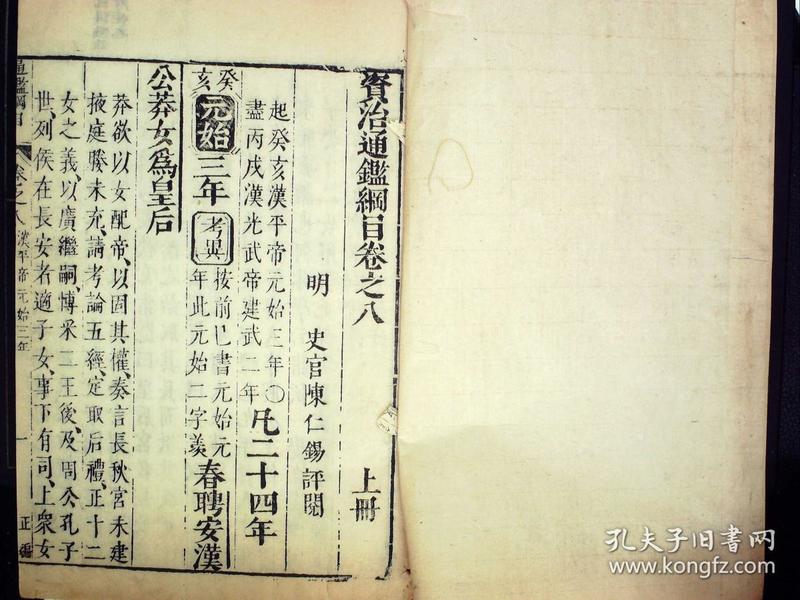 資治通鑑綱目卷之八
上冊
明 史官陳仁錫評閱
起癸亥漢平帝元始三年〇
盡丙戌漢光武帝建武二年
凡二十四年
癸亥
元始三年
考異
按前已書元始元
年此元始二字羨
春聘安漢
公莽女為皇后
莽欲以女配帝、以固其權、奏言長秋宮未建
掖庭媵未充、請考論五經、定取后禮、正十二
女之義、以廣繼嗣、博采二王後、及周公孔子
世、列侯在長安者適子女、事下有司、上眾女
通鑑綱目
卷之八
漢平帝元始三年
一
正編
孔夫子旧书网
www.kongfz.com